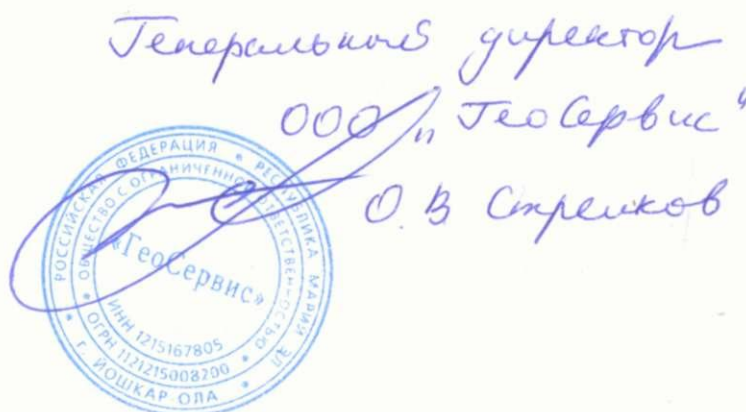 Генеральный директор
ООО „ГеоСервис"
О.В Стрелков
РОССИЙСКАЯ ФЕДЕРАЦИЯ * РЕСПУБЛИКА МАРИЙ ЭЛ
ОБЩЕСТВО С ОГРАНИЧЕННОЙ ОТВЕТСТВЕННОСТЬЮ
«ГеоСервис»
ИНН 1215167805
ОГРН 1121215008200
г. ЙОШКАР-ОЛА